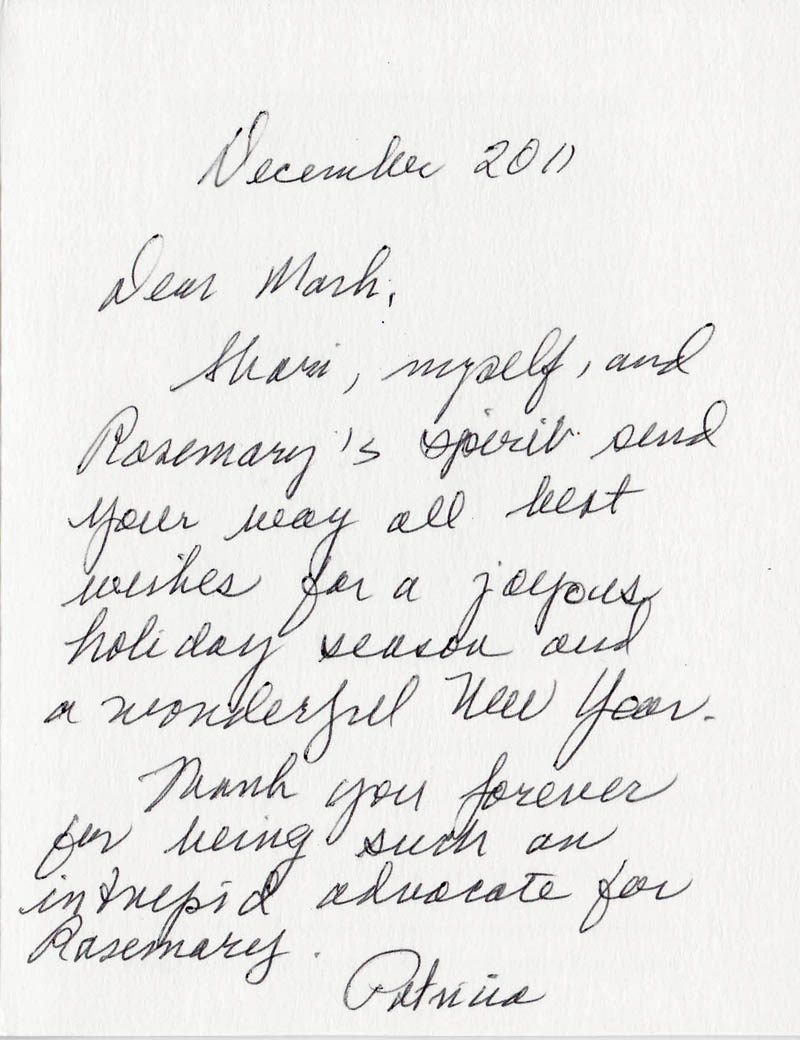 December 2011
Dear Mark,
Shari, myself, and
Rosemary's spirit send
your way all best
wishes for a joyous
holiday season and
a wonderful New Year.
Thank you forever
for being such an
intrepid advocate for
Rosemary.
Patricia